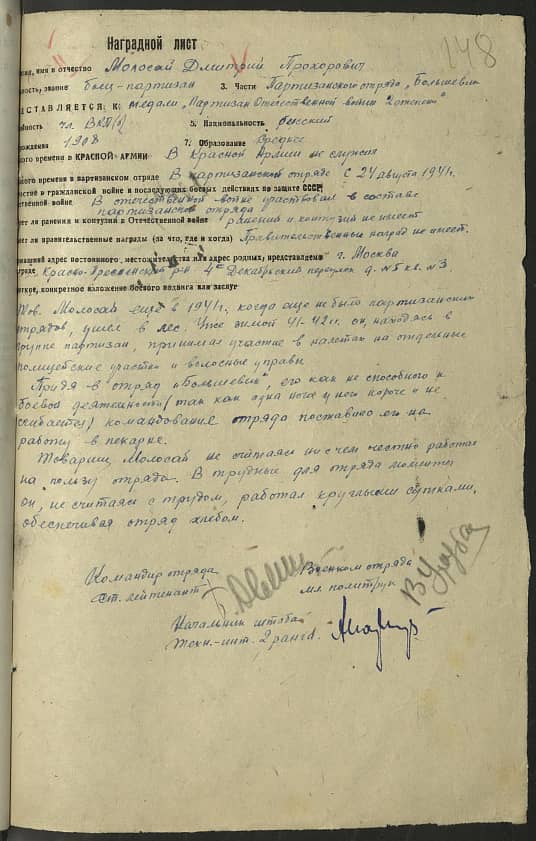 248
Наградной лист
имя и отчество Молосай Дмитрий Прохорович
звание боец-партизан 3. Части Партизанского отряда „Большевик
СТАВЛЯЕТСЯ К: медали „Партизан Отечественной войны 2 степени"
чл. ВКП(б) 5. Национальность русский
рождения 1908 7. Образование Среднее
кого времени в КРАСНОЙ АРМИИ В Красной Армии не служил
кого времени в партизанском отряде В партизанском отряде с 24 августа 1941 г.
участие в гражданской войне и последующих боевых действиях по защите СССР,
ственной войне В отечественной войне участвовал в составе
партизанского отряда
ет ли ранения и контузии в Отечественной войне ранений и контузий не имеет
еет ли правительственные награды (за что, где и когда) Правительственных наград не имеет.
машний адрес постоянного местожительства или адрес родных представляемого г. Москва
Красно-Пресненский р-н. 4й Декабрьский переулок д. №5 кв. №3
раткое, конкретное изложение боевого подвига или заслуг
Тов. Молосай ещё в 1941 г., когда еще не было партизанских
отрядов, ушел в лес. Уже зимой 41-42 г.г. он, находясь в
группе партизан, принимал участие в налетах на отдельные
полицейские участки и волосные управы
Придя в отряд „Большевик", его как не способного к
боевой деятельности (так как одна нога у него короче и не
сгибается) командование отряда поставило его на
работу в пекарне.
Товарищ Молосай не считаясь ни с чем честно работал
на пользу отряда. В трудные для отряда моменты
он, не считаясь с трудом, работал круглыми сутками,
обеспечивая отряд хлебом.
Командир отряда Военком отряда
Ст. лейтенант мл. политрук
Начальник штаба
Техн.-инт. 2 ранга.